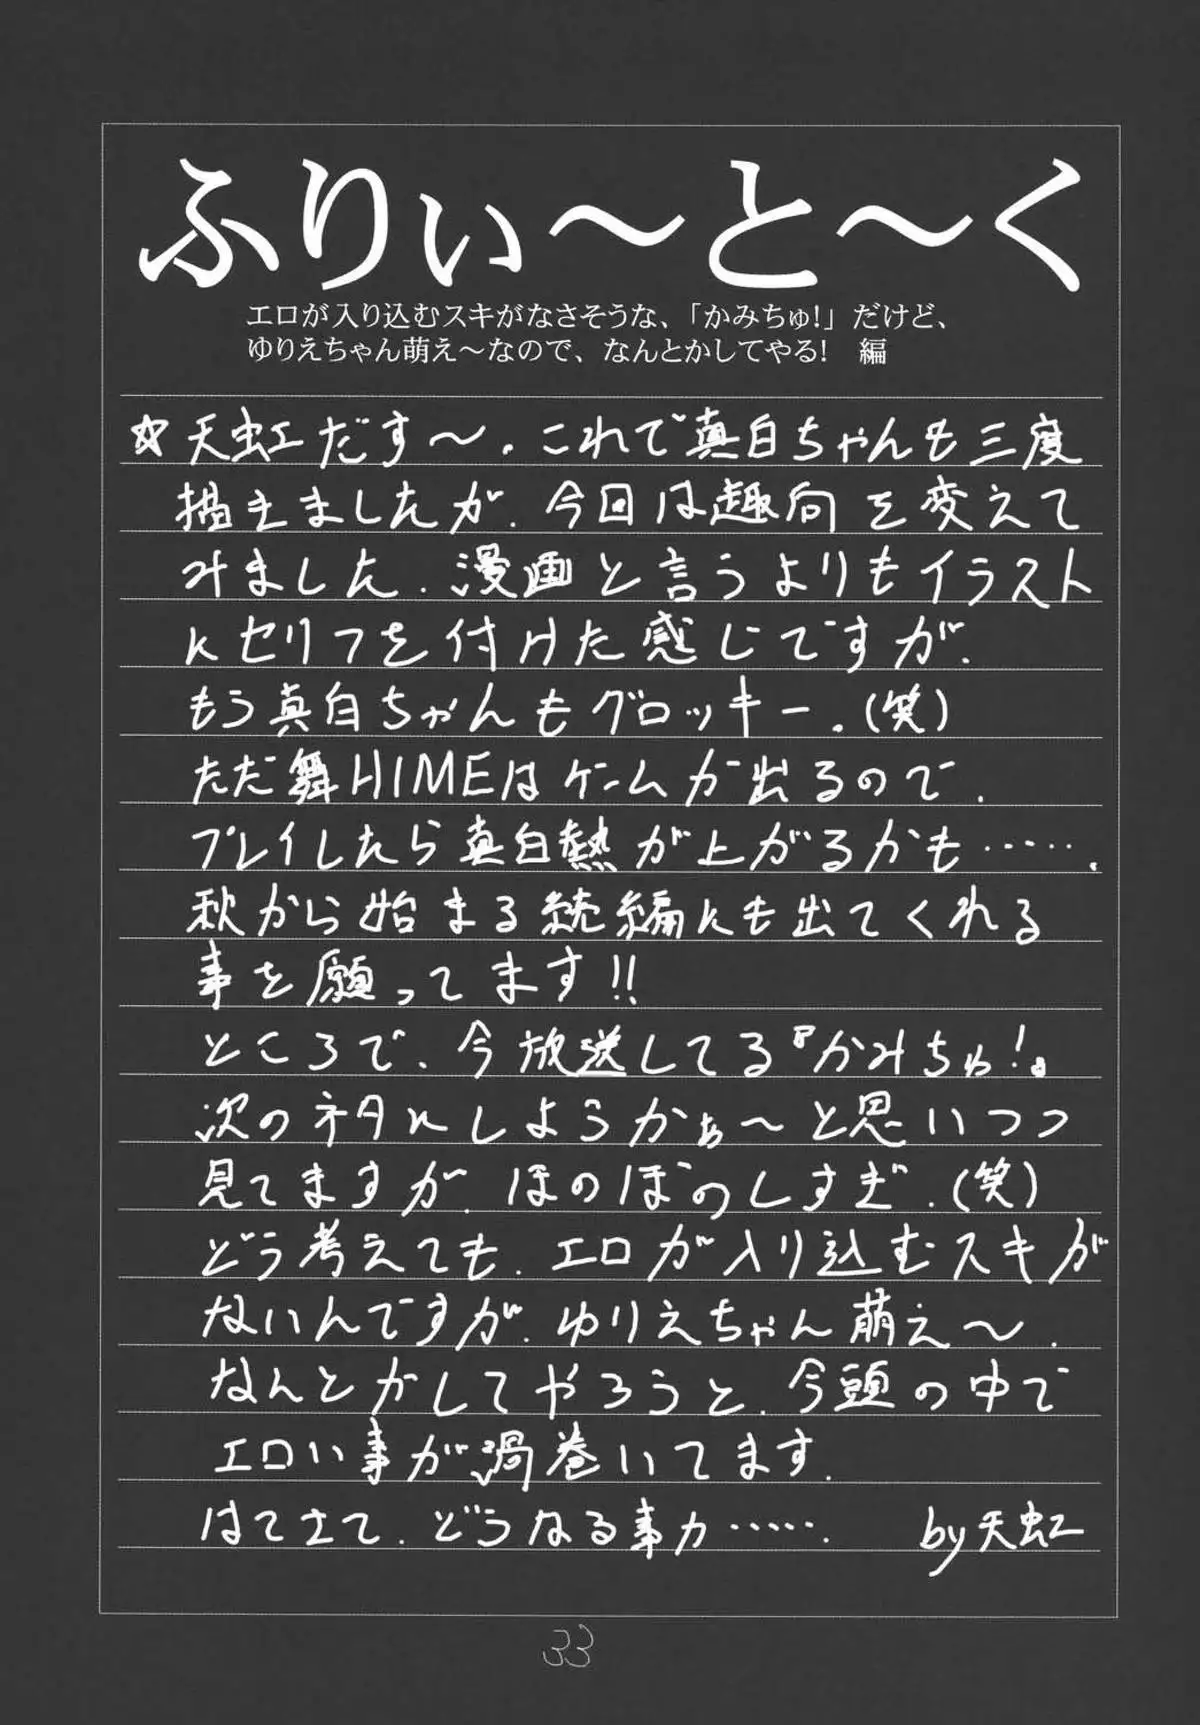 ふりぃ～と～く
エロが入り込むスキがなさそうな、「かみちゅ!」だけど、
ゆりえちゃん萌え～なので、なんとかしてやる!　編
☆天虹だす～。これで真白ちゃんも三度
描きましたが、今回は趣向を変えて
みました。漫画と言うよりもイラスト
にセリフを付けた感じですが。
もう真白ちゃんもグロッキー。(笑)
ただ舞HIMEはゲームが出るので、
プレイしたら真白熱が上がるかも……。
秋から始まる続編にも出てくれる
事を願ってます!!
ところで、今放送してる『かみちゅ!』
次のネタにしようかぁ～と思いつつ
見てますが、ほのぼのしすぎ。(笑)
どう考えても、エロが入り込むスキが
ないんですが、ゆりえちゃん萌え～。
なんとかしてやろうと、今頭の中で
エロい事が渦巻いてます。
はてさて、どうなる事か……。　by天虹
33